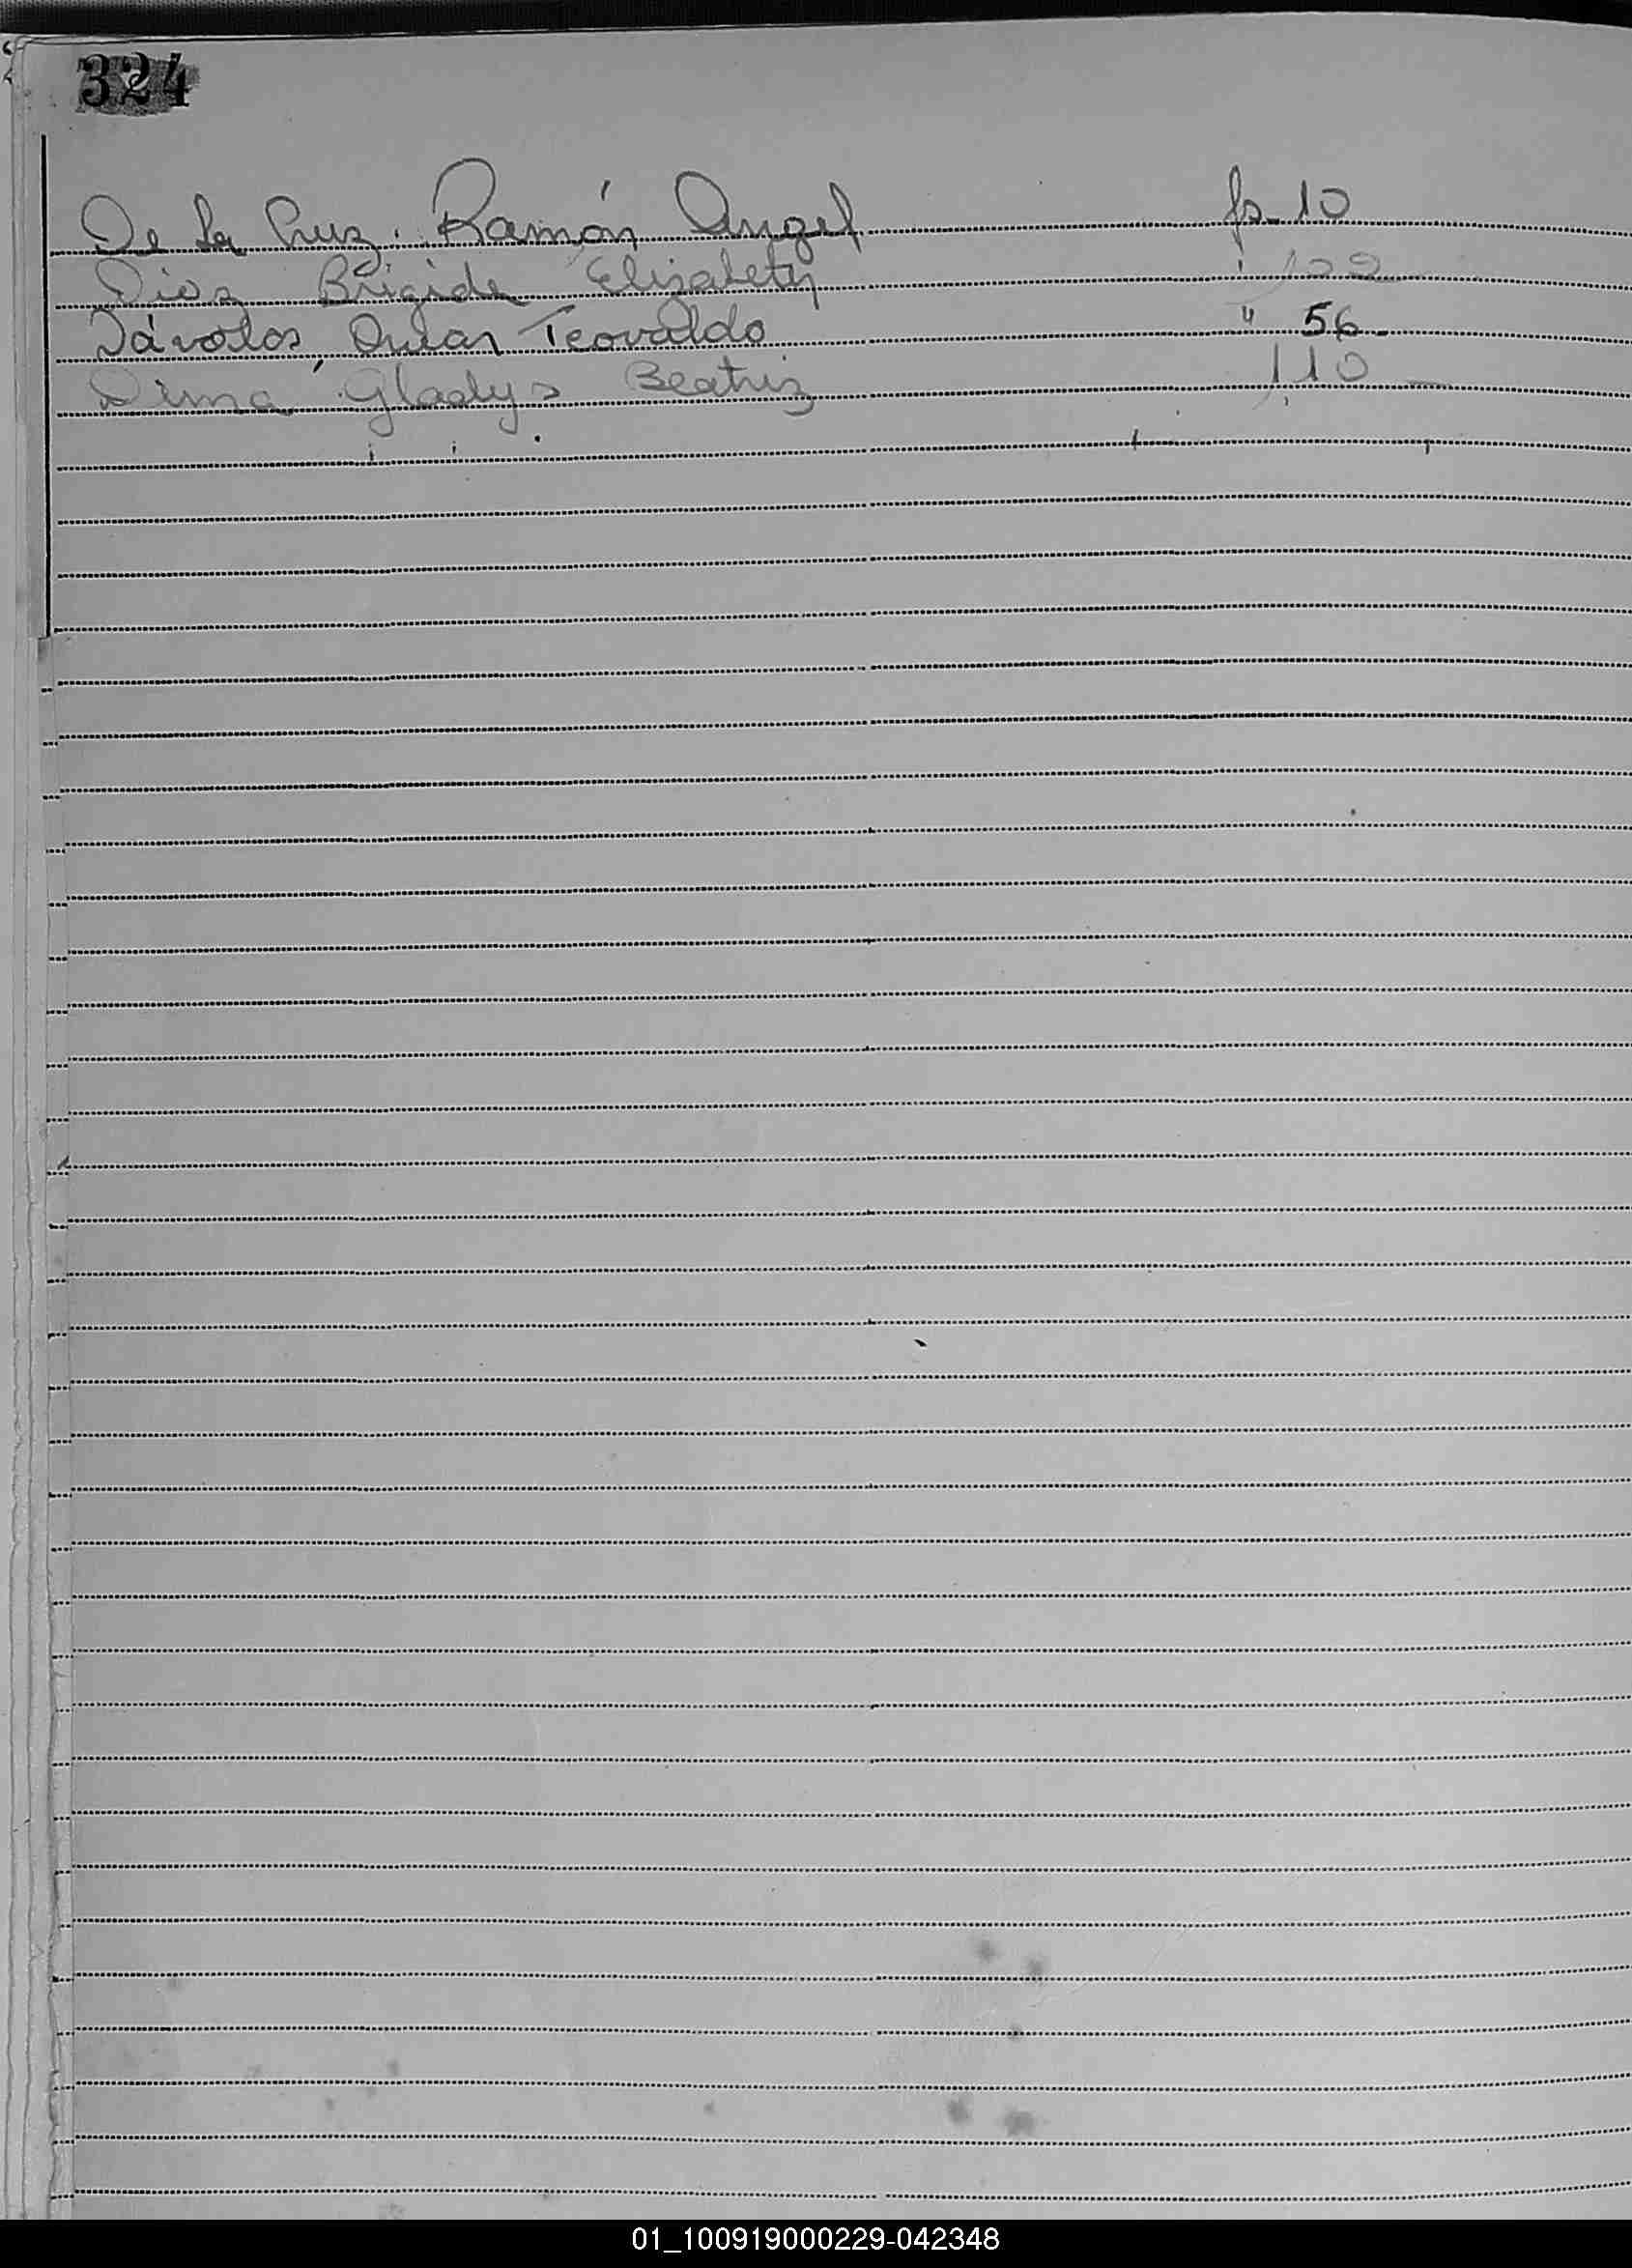 324
De La Cruz. Ramón Angel fs. 10
Dioz Brigida Elizabeth
Dávolos, Omar Teovaldo " 56-
Dima Gladys Beatriz 110 -
01_100919000229-042348